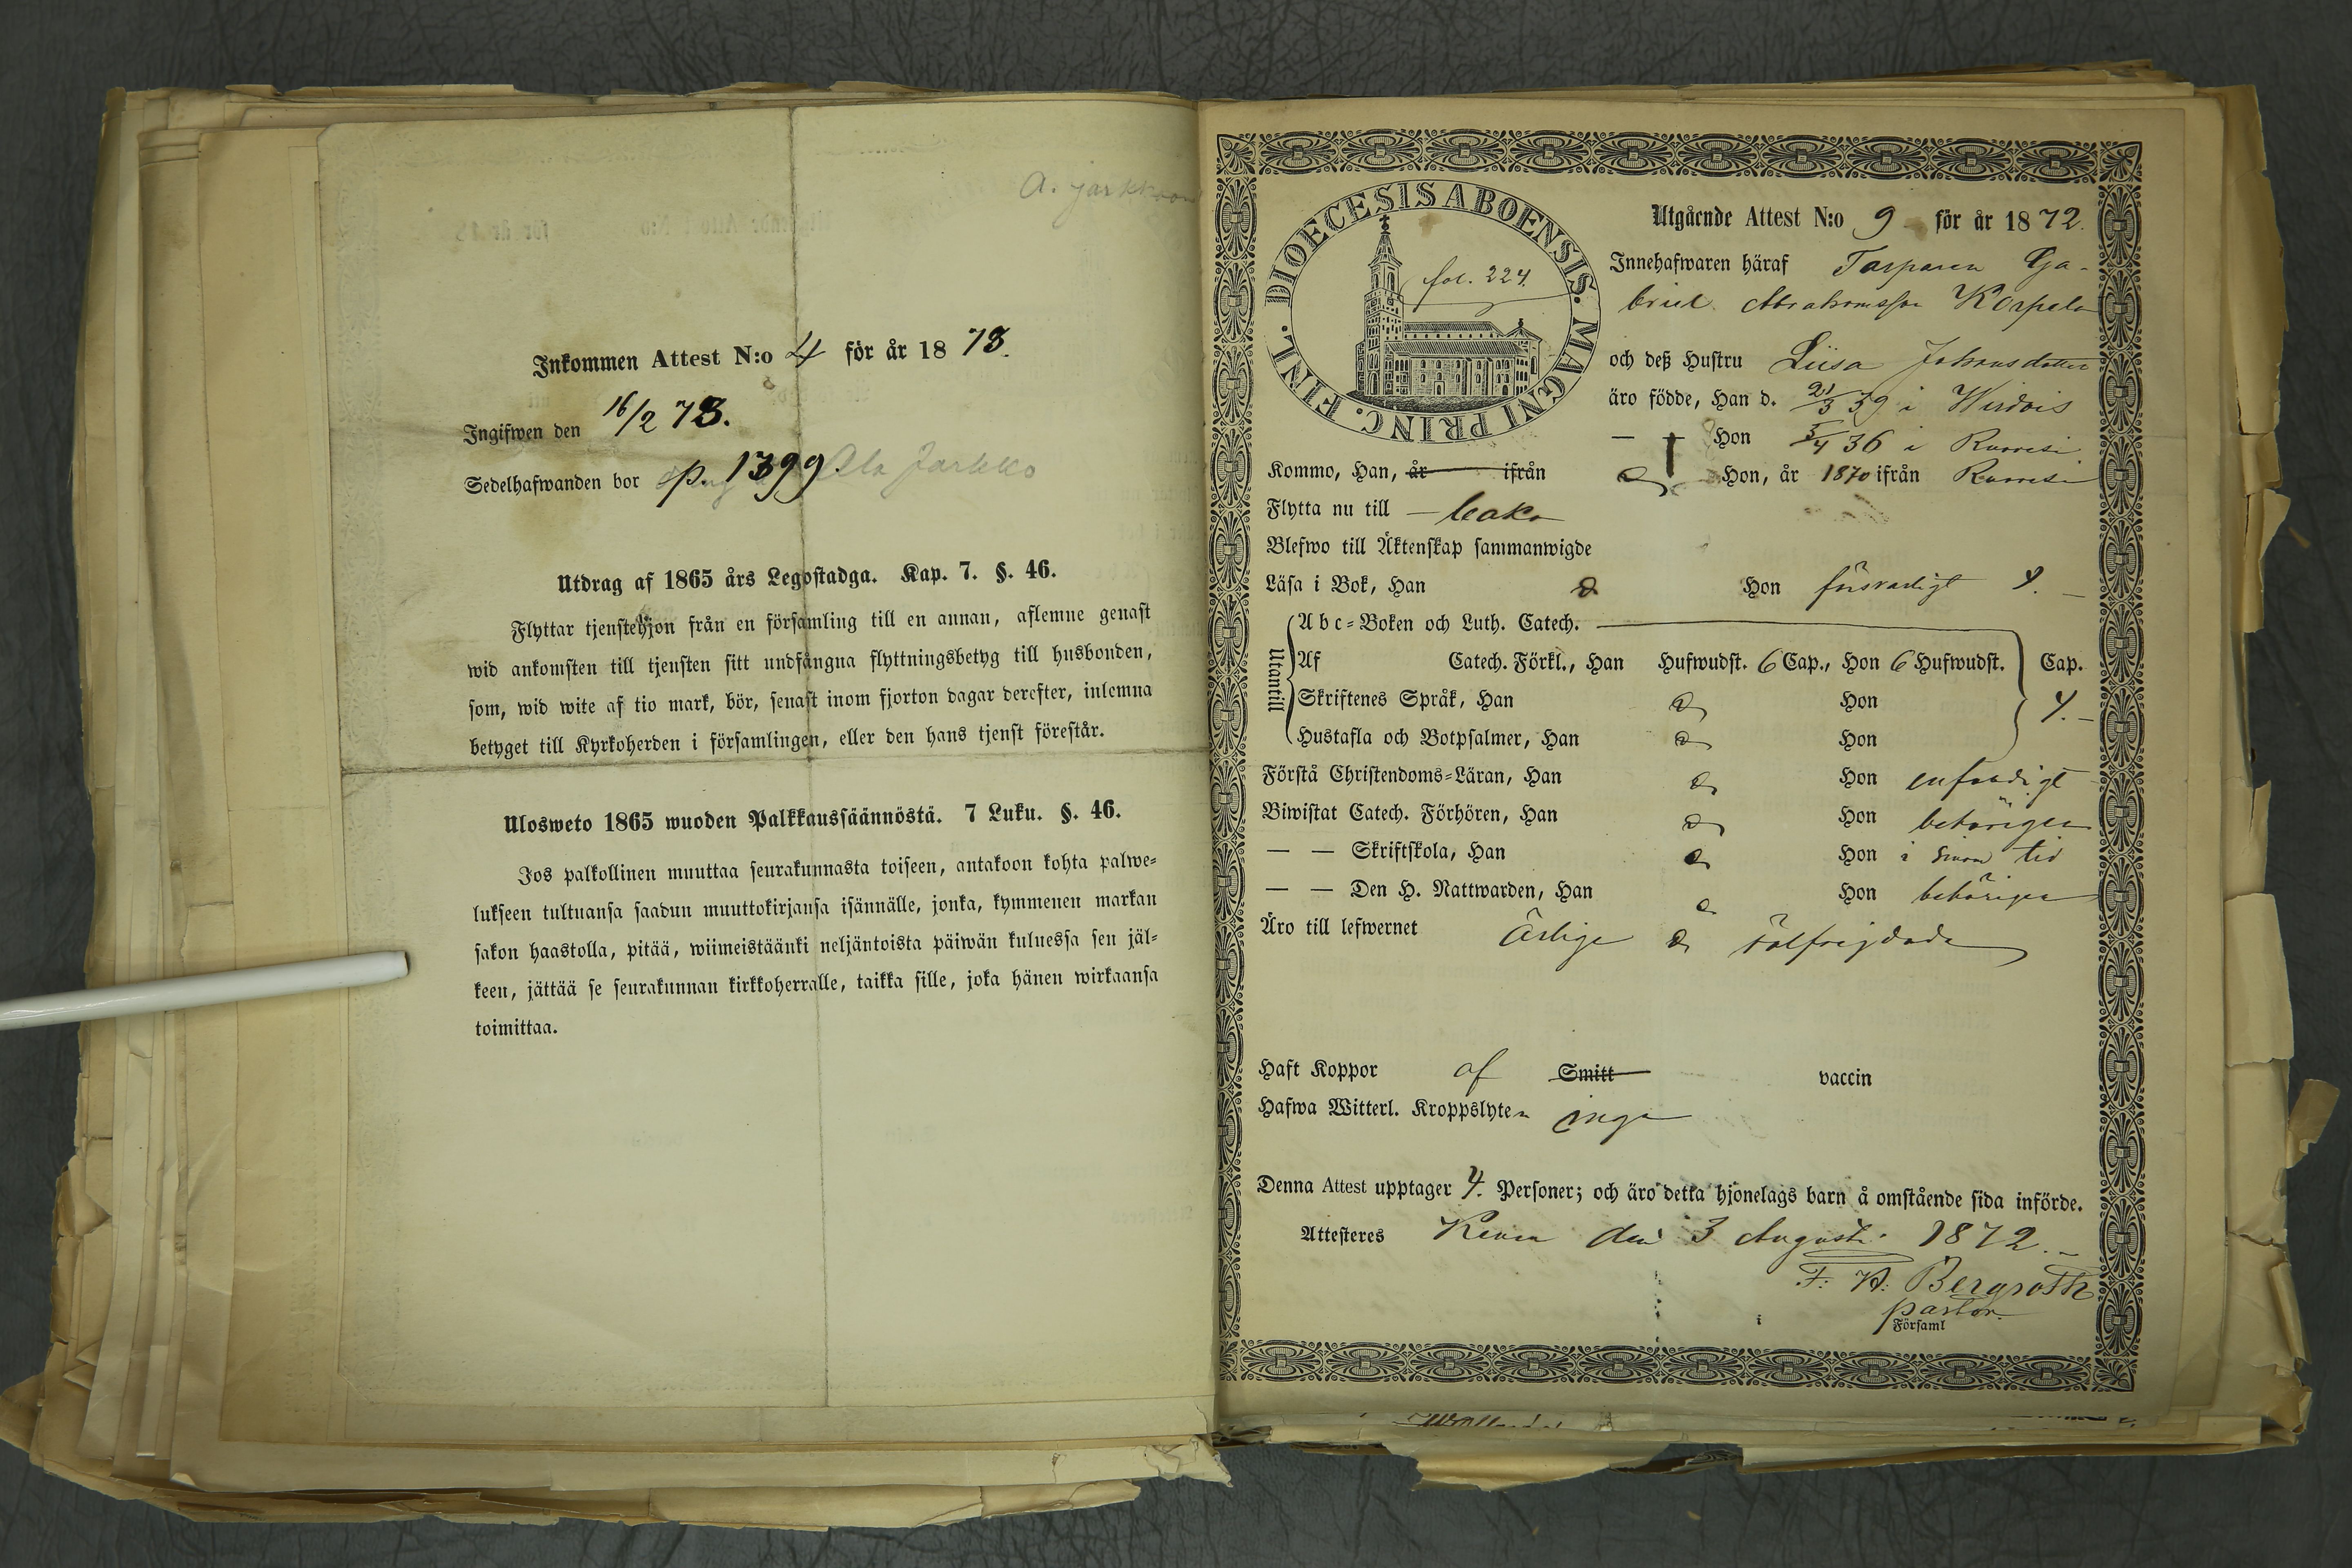 A. Jarkkoon
Inkommen Attest N:o 4 för år 1873.
Ingifwen den 16/2 73.
Sedelhafwanden bor p. 1399. Ala Jarkko
Utdrag af 1865 års Legostadga. Kap. 7. §. 46.
Flyttar tjenstehjon från en församling till en annan, aflemne genast
wid ankomsten till tjensten sitt undfångna flyttningsbetyg till husbonden,
som, wid wite af tio mark, bör, senast inom fjorton dagar derefter, inlemna
betyget till Kyrkoherden i församlingen, eller den hans tjenst förestår.
Ulosweto 1865 wuoden Palkkaussäännöstä. 7 Luku. §. 46.
Jos palkollinen muuttaa seurakunnasta toiseen, antakoon kohta palwe-
lukseen tultuansa saadun muuttokirjansa isännälle, jonka, kymmenen markan
sakon haastolla, pitää, wiimeistäänki neljäntoista päiwän kuluessa sen jäl-
keen, jättää se seurakunnan kirkkoherralle, taikka sille, joka hänen wirkaansa
toimittaa.
DIOECESIS ABOENSIS. MAGNI PRINC. FINL.
fol. 224.
Utgående Attest N:o 9 för år 1872.
Innehafwaren häraf Torparen Ga-
briel Abrahamsson Korpela
och deß Hustru Liisa Johansdotter
äro födde, Han d. 21/3 39 i Wirdois
— Hon 5/4 36 i Ruovesi
Kommo, Han, år ifrån Hon, år 1870 ifrån Ruovesi
Flytta nu till
Blefwo till Äktenskap sammanwigde
Läsa i Bok, Han Hon försvarligt 4.
Utantill
Abc-Boken och Luth. Catech.
Af Catech. Förkl., Han Hufwudst. 6 Cap., Hon 6 Hufwudst. Cap.
Skriftenes Språk, Han Hon 4.
Hustafla och Botpsalmer, Han Hon
Förstå Christendoms-Läran, Han Hon enfaldigt
Biwistat Catech. Förhören, Han Hon behörigen
— — Skriftskola, Han Hon i sinom tid
— — Den H. Nattwarden, Han Hon behörigen
Äro till lefwernet Ärlige & välfrejdade
Haft Koppor af Smitt vaccin
Hafwa Witterl. Kroppslyten inga
Denna Attest upptager 4. Personer; och äro detta hjonelags barn å omstående sida införde.
Attesteres Keuru den 3 Augusti 1872.
Bergroth
pastor
Församl